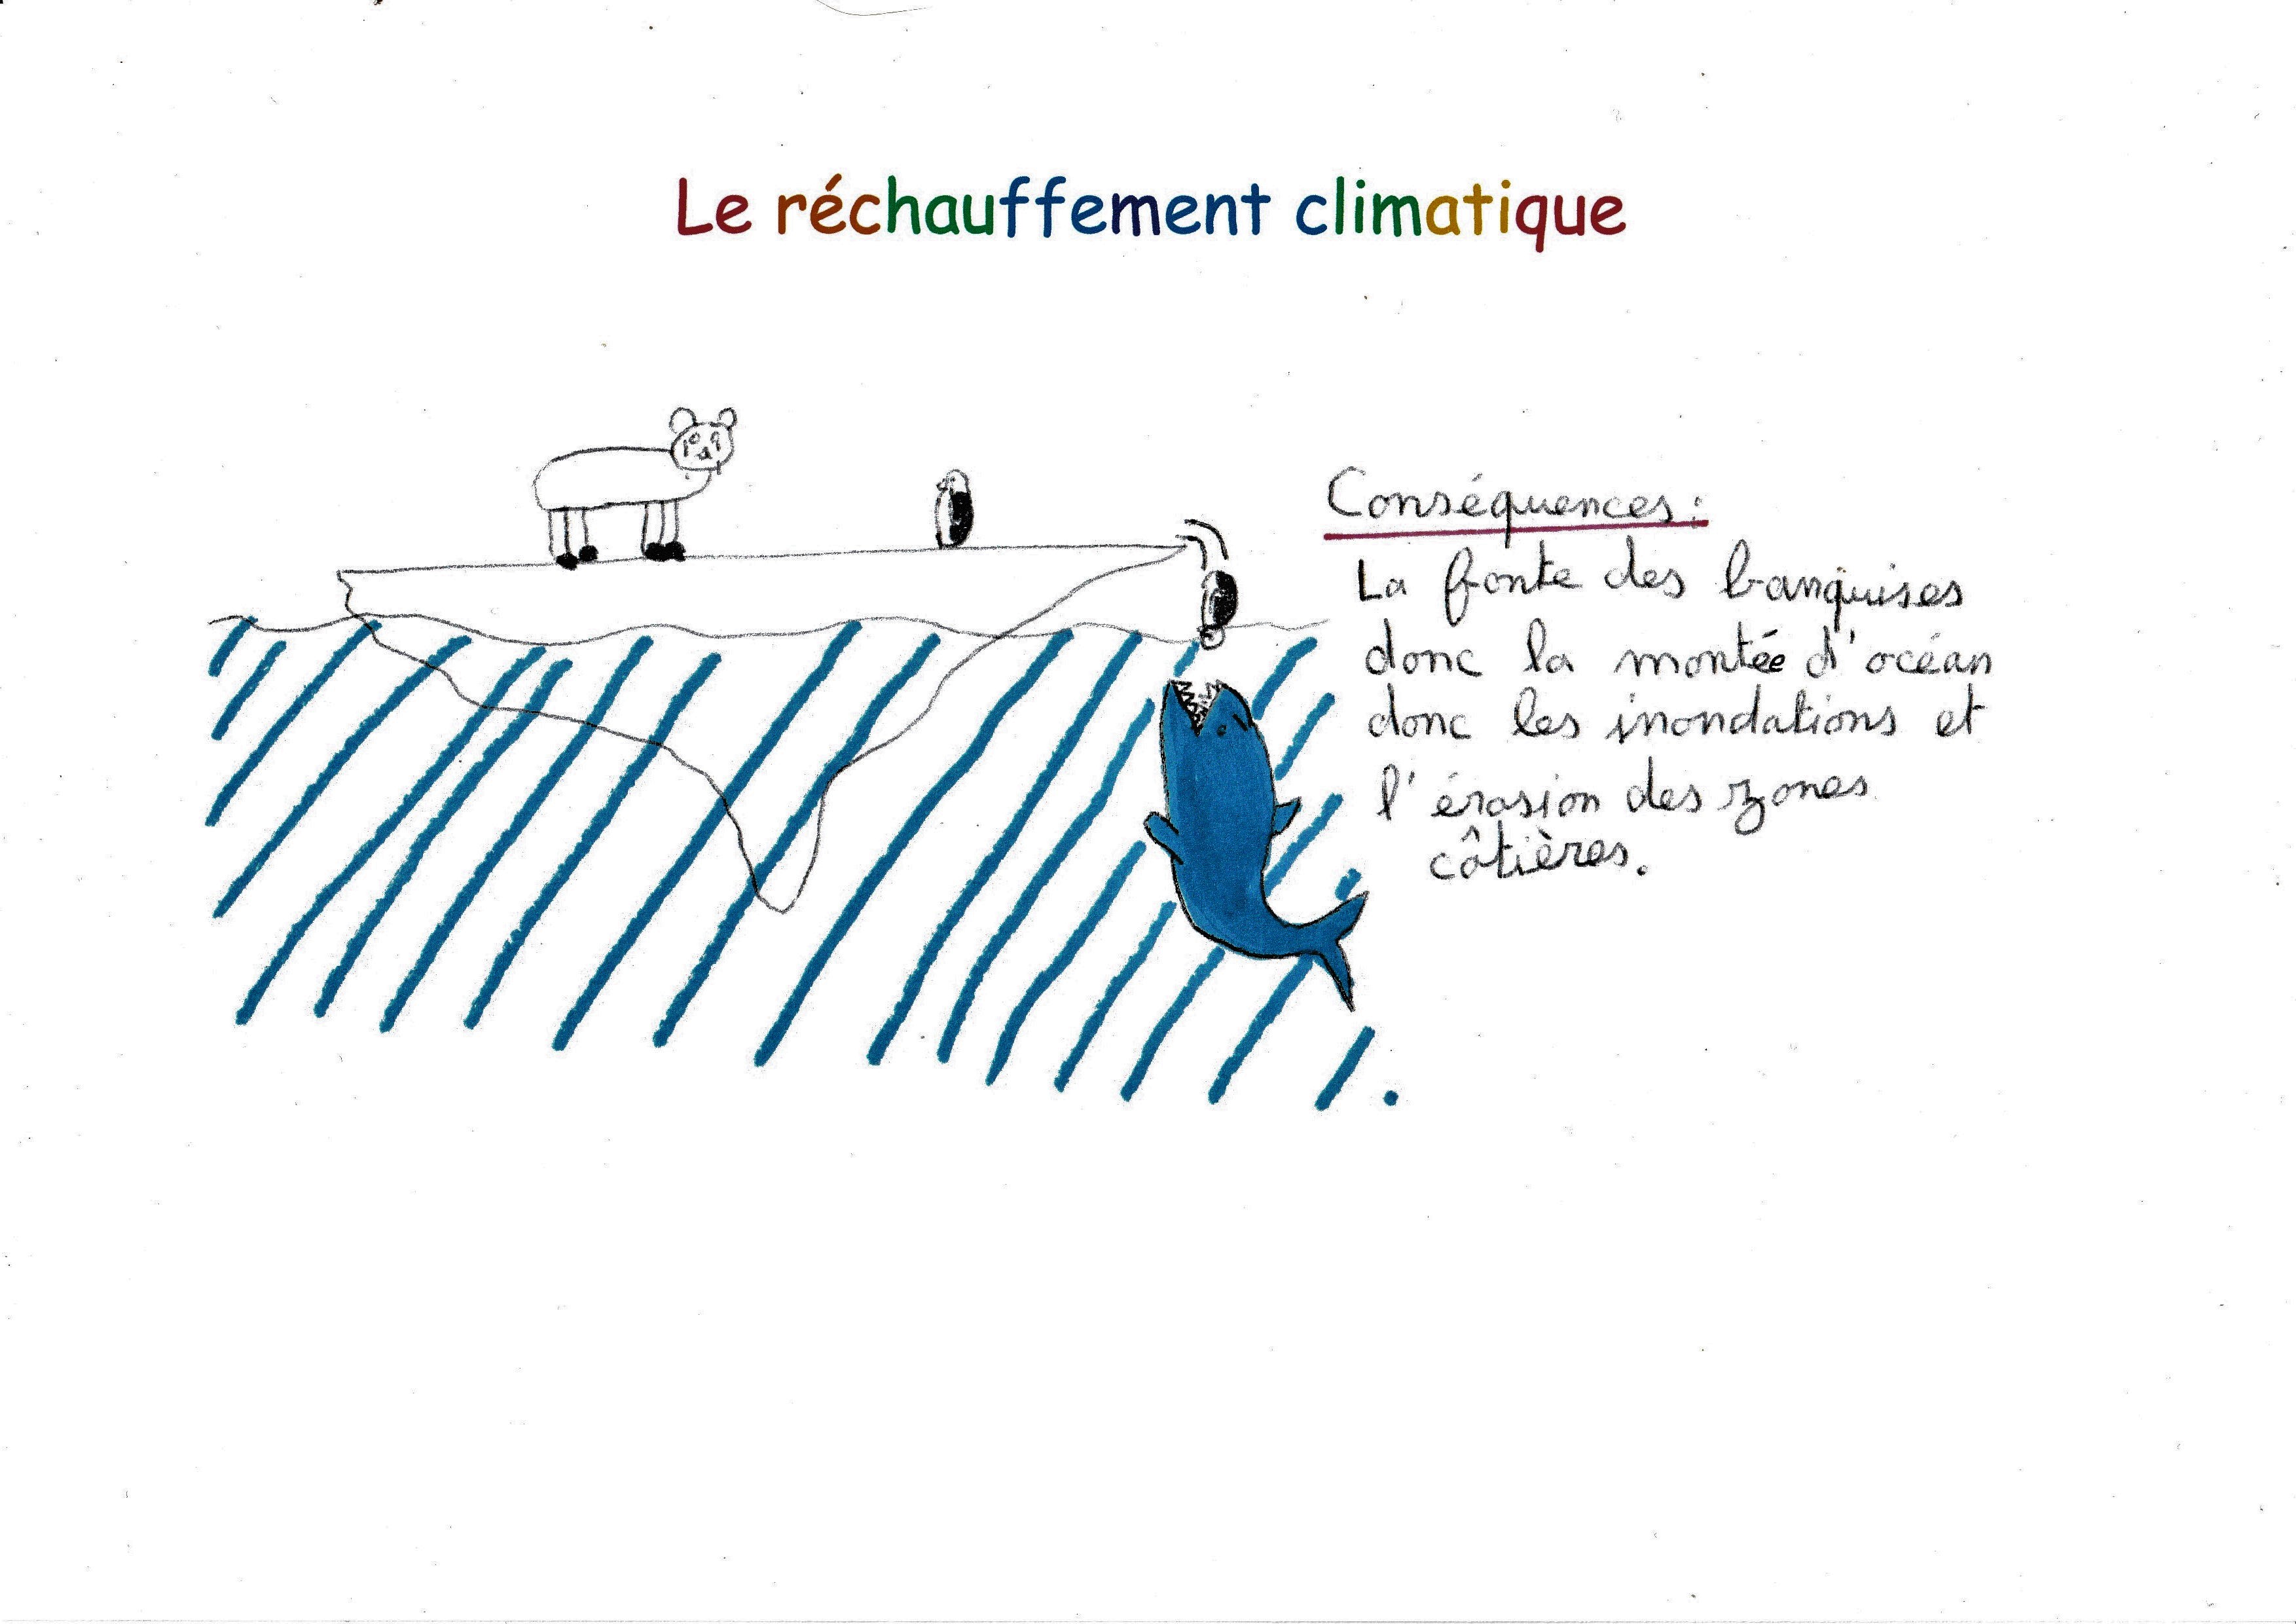 Le réchauffement climatique
Conséquences :
La fonte des banquises
donc la montée d'océan
donc les inondations et
l'érosion des zones
côtières.